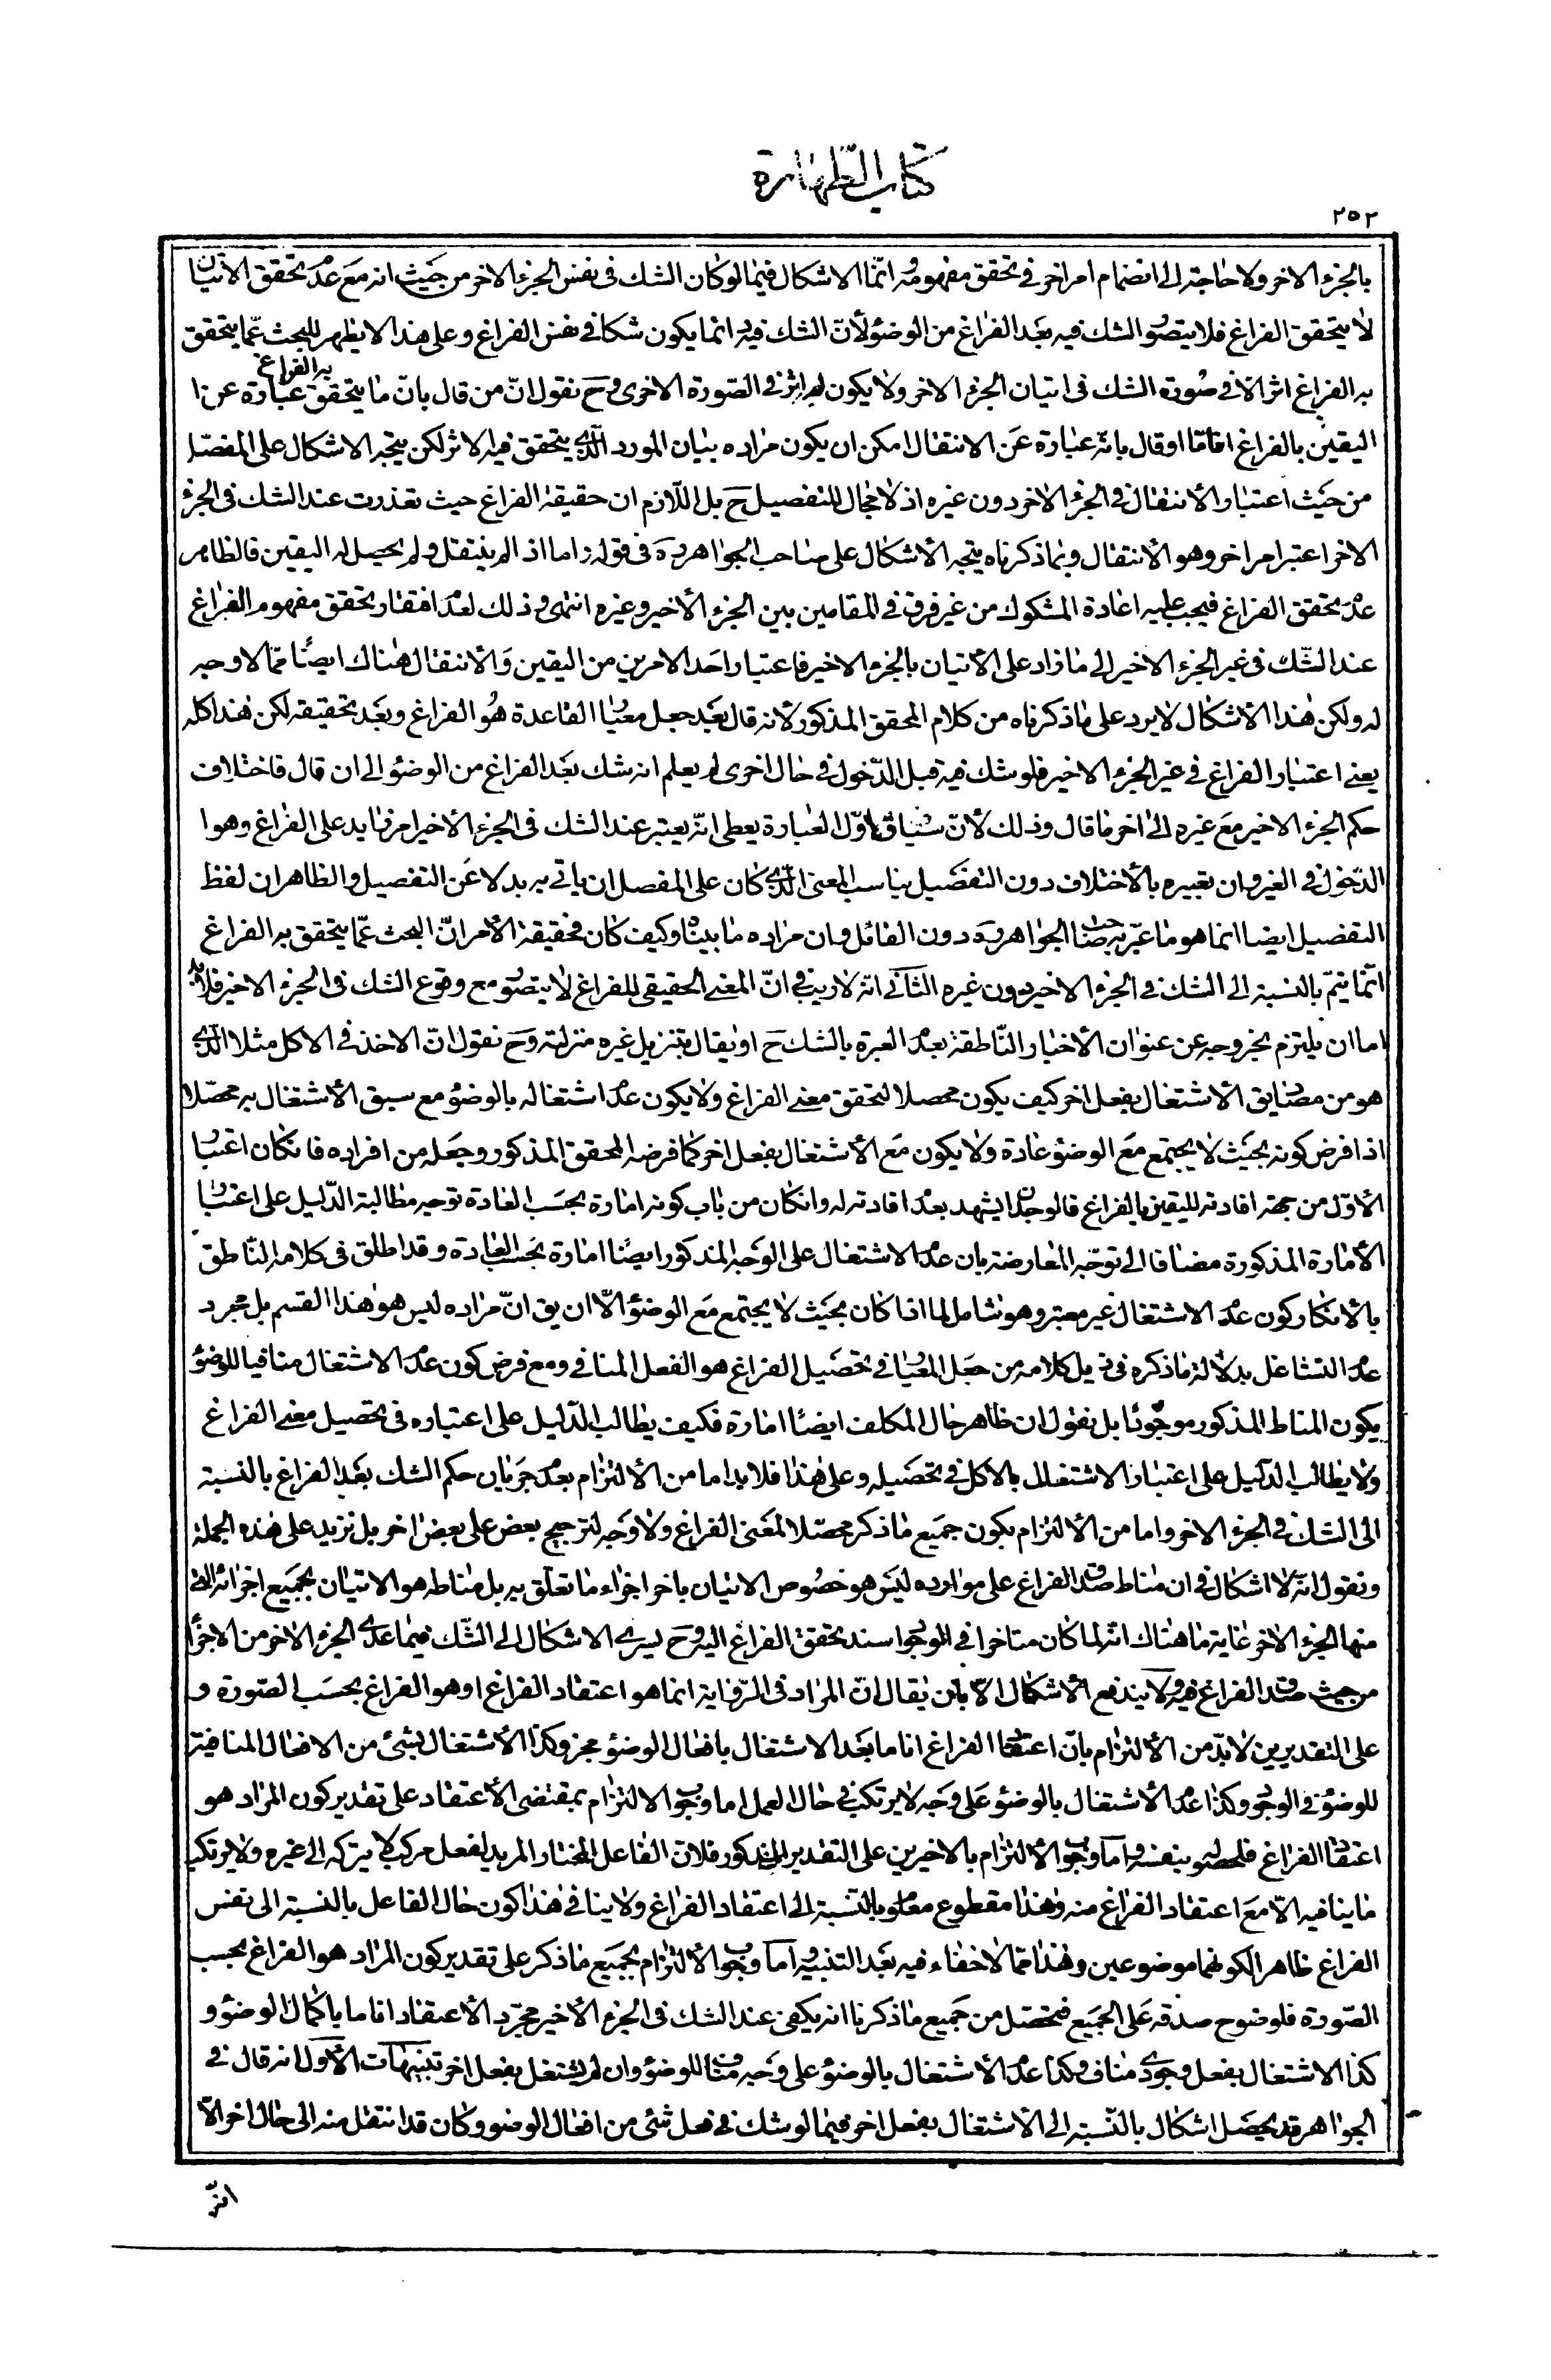 كتاب الطهارة
٢٥٢
بالجزء الاخر ولا حاجة الى انضمام امر اخر في تحقق مفهومه انّما الاشكال فيما لو كان الشك في نفس الجزء الاخر من حيث انه مع عدم تحقق الاتيان
لا يتحقق الفراغ فلا يتصوّر الشك فيه بعد الفراغ من الوضوء لأنّ الشك فيه انما يكون شكا في نفس الفراغ وعلى هذا لا يظهر للبحث عمّا يتحقق
به الفراغ اثر الّا في صورة الشك في اتيان الجزء الاخر ولا يكون له اثر في الصّورة الاخرى وح نقول انّ من قال بانّ ما يتحقق به الفراغ عبارة عن ا
اليقين بالفراغ اناما او قال بانّه عبارة عن الانتقال امكن ان يكون مراده بيان المورد الّذي يتحقق فيه الاثر لكن يتجه الاشكال على المفصّل
من حيث اعتبار الأنتقال في الجزء الاخر دون غيره اذ لا مجال للتفصيل ح بل اللّازم ان حقيقة الفراغ حيث تعذرت عند الشك في الجزء
الاخر اعتبر امر اخر وهو الأنتقال وبما ذكرناه يتجه الأشكال على صاحب الجواهر ره في قوله واما اذا لم ينتقل ولم يحصل له اليقين فالظاهر
عدم تحقق الفراغ فيجب عليه اعادة المشكوك من غير فرق في المقامين بين الجزء الأخير وغيره انتهى وذلك لعدم افتقار تحقق مفهوم الفراغ
عند الشّك في غير الجزء الاخير الى ما زاد على الأتيان بالجزء الاخير فاعتبار احد الامرين من اليقين والأنتقال هناك ايضًا ممّا لا وجه
له ولكن هذا الأشكال لا يرد على ما ذكرناه من كلام المحقق المذكور لأنه قال بعد جعل معيار القاعدة هو الفراغ وبعد تحقيقه لكن هذا كله
يعني اعتبار الفراغ في غير الجزء الاخير فلو شك فيه قبل الدّخول في حال اخرى لم يعلم انه شك بعد الفراغ من الوضوء الى ان قال فاختلاف
حكم الجزء الاخير مع غيره الى اخر ما قال وذلك لأنّ سياق اوّل العبارة يعطى انّه يعتبر عند الشك في الجزء الأخير امر زايد على الفراغ وهو ا
الدّخول في الغير وان تعبيره بالأختلاف دون التفصيل يناسب المعنى الّذي كان على المفصل ان ياتي به بدلا عن التفصيل والظاهر ان لفظ
التفصيل ايضا انما هو ما عبّر به صاحب الجواهر ره دون القائل وان مراده ما بيّناه وكيف كان فحقيقة الأمر انّ البحث عمّا يتحقق به الفراغ
انّما يتمّ بالنسبة الى الشك في الجزء الاخير دون غيره الثّاني انّه لا ريب في انّ المعنى الحقيقي للفراغ لا يتصوّر مع وقوع الشك في الجزء الاخير فلا بد
اما ان يلتزم بخروجه عن عنوان الأخبار النّاطقة بعدم العبرة بالشك ح او يقال بتنزيل غيره منزلته وح نقول انّ الاخذ في الاكل مثلا الّذي
هو من مصاديق الأشتغال بفعل اخر كيف يكون محصلا لتحقق معنى الفراغ ولا يكون عدم اشتغاله بالوضوء مع سبق الأشتغال به محصّلا
اذا فرض كونه بحيث لا يجتمع مع الوضوء عادة ولا يكون مع الأشتغال بفعل اخر كما فرضه المحقق المذكور وجعله من افراده فان كان اعتبار
الأوّل من جهة افادته لليقين بالفراغ فالوجدان يشهد بعدم افادته له وان كان من باب كونه امارة بحسب العادة توجه مطالبة الدّليل على اعتبار
الأمارة المذكورة مضافا الى توجّه المعارضة بان عدم الاشتغال على الوجه المذكور ايضًا امارة بحسب العادة وقد اطلق في كلامه النّاطق
بالأنكار كون عدم الاشتغال غير معتبر وهو شامل لما اذا كان بحيث لا يجتمع مع الوضوء الّا ان يق انّ مراده ليس هو هذا القسم بل مجرد
عدم التشاغل بدلالة ما ذكره في ذيل كلامه من جعل المعيار في تحصيل الفراغ هو الفعل المنافى ومع فرض كون عدم الاشتغال منافيا للوضوء
يكون المناط المذكور موجودا بل نقول ان ظاهر حال المكلف ايضًا امارة فكيف يطالب الدّليل على اعتباره في تحصيل معنى الفراغ
ولا يطالب الدليل على اعتبار الاشتغال بالاكل في تحصيله وعلى هذا فلا بد اما من الألتزام بعدم جريان حكم الشك بعد الفراغ بالنسبة
الى الشك في الجزء الاخر واما من الألتزام بكون جميع ما ذكر محصّلا لمعنى الفراغ ولا وجه لترجيح بعض على بعض اخر بل نزيد على هذه الجملة
ونقول انّه لا اشكال في ان مناط صدق الفراغ على موارده ليس هو خصوص الاتيان باخر اجزاء ما تعلّق به بل مناطه هو الاتيان بجميع اجزائه الّتي
منها الجزء الاخر غاية ما هناك انّه لما كان متاخرا في الوجود اسند تحقق الفراغ اليه وح يسرى الاشكال الى الشّك فيما عدى الجزء الاخر من الاجزاء
من حيث صدق الفراغ فيه ولا يندفع الأشكال الّا بان يقال انّ المراد في الرّواية انما هو اعتقاد الفراغ او هو الفراغ بحسب الصّورة و
على التقديرين لا بدّ من الألتزام بانّ اعتقاد الفراغ اناما بعد الاشتغال بافعال الوضوء مجز وكذا الأشتغال بشئ من الافعال المنافية
للوضوء في الوجود وكذا عدم الأشتغال بالوضوء على وجه لا يرتكب في حال العمل اما وجوب الالتزام بمقتضى الأعتقاد على تقدير كون المراد هو
اعتقاد الفراغ فلحصوله بنفسه واما وجوب الألتزام بالاخيرين على التقدير المذكور فلان الفاعل المختار المريد لفعل مركب لا يتركه الى غيره ولا يرتكب
ما ينافيه الّا مع اعتقاد الفراغ منه وهذا مقطوع معلوم بالنّسبة الى اعتقاد الفراغ ولا ينافي هذا كون حال الفاعل بالنسبة الى نفس
الفراغ ظاهرا لكونهما موضوعين وهذا ممّا لا خفاء فيه بعد التنبيه واما وجوب الألتزام بجميع ما ذكر على تقدير كون المراد هو الفراغ بحسب
الصّورة فلوضوح صدقه على الجميع فتحصّل من جميع ما ذكرنا انه يكفى عند الشك في الجزء الأخير مجرّد الأعتقاد اناما باكمال الوضوء و
كذا الاشتغال بفعل وجودي مناف وكذا عدم الأشتغال بالوضوء على وجه مناف للوضوء وان لم يشتغل بفعل اخر تنبيهات الأوّل انه قال في
الجواهر قد يحصل اشكال بالنّسبة الى الأشتغال بفعل اخر فيما لو شك في فعل شئ من افعال الوضوء وكان قد انتقل منه الى حال اخر الّا
انّه